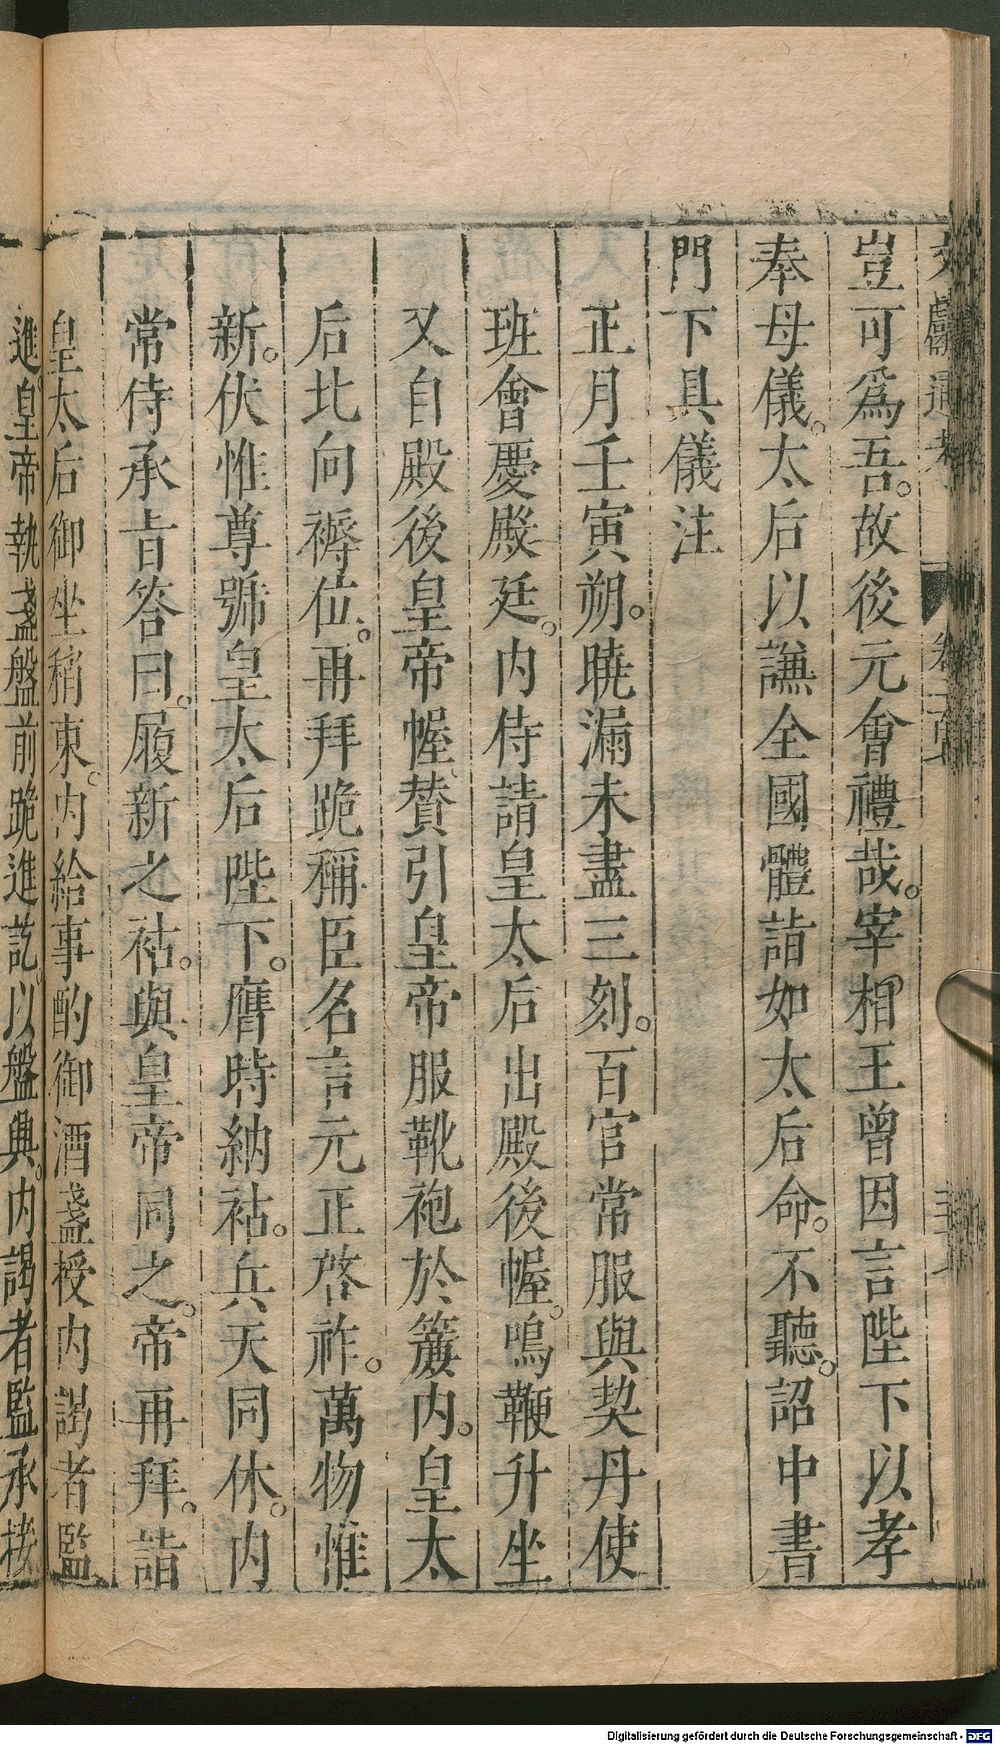 豈可爲吾。故後元會禮哉。宰相王曾因言陛下以孝
奉母儀。太后以謙全國體請如太后命。不聽。詔中書
門下具儀注
正月壬寅朔。曉漏未盡三刻。百官常服與契丹使
班會慶殿廷。内侍請皇太后出殿後幄。鳴鞭升坐
又自殿後皇帝幄、賛引皇帝服靴袍於簾内。皇太
后北向褥位。再拜跪稱臣名言元正啓祚。萬物惟
新。伏惟尊號皇太后陛下。膺時納祜。與天同休。内
常侍承旨答曰。履新之祜。與皇帝同之。帝再拜。請
皇太后御坐稍東。内給事酌御酒盞授内謁者監
進。皇帝執盞盤前跪進訖。以盤興。内謁者監承接
Digitalisierung gefördert durch die Deutsche Forschungsgemeinschaft - DFG